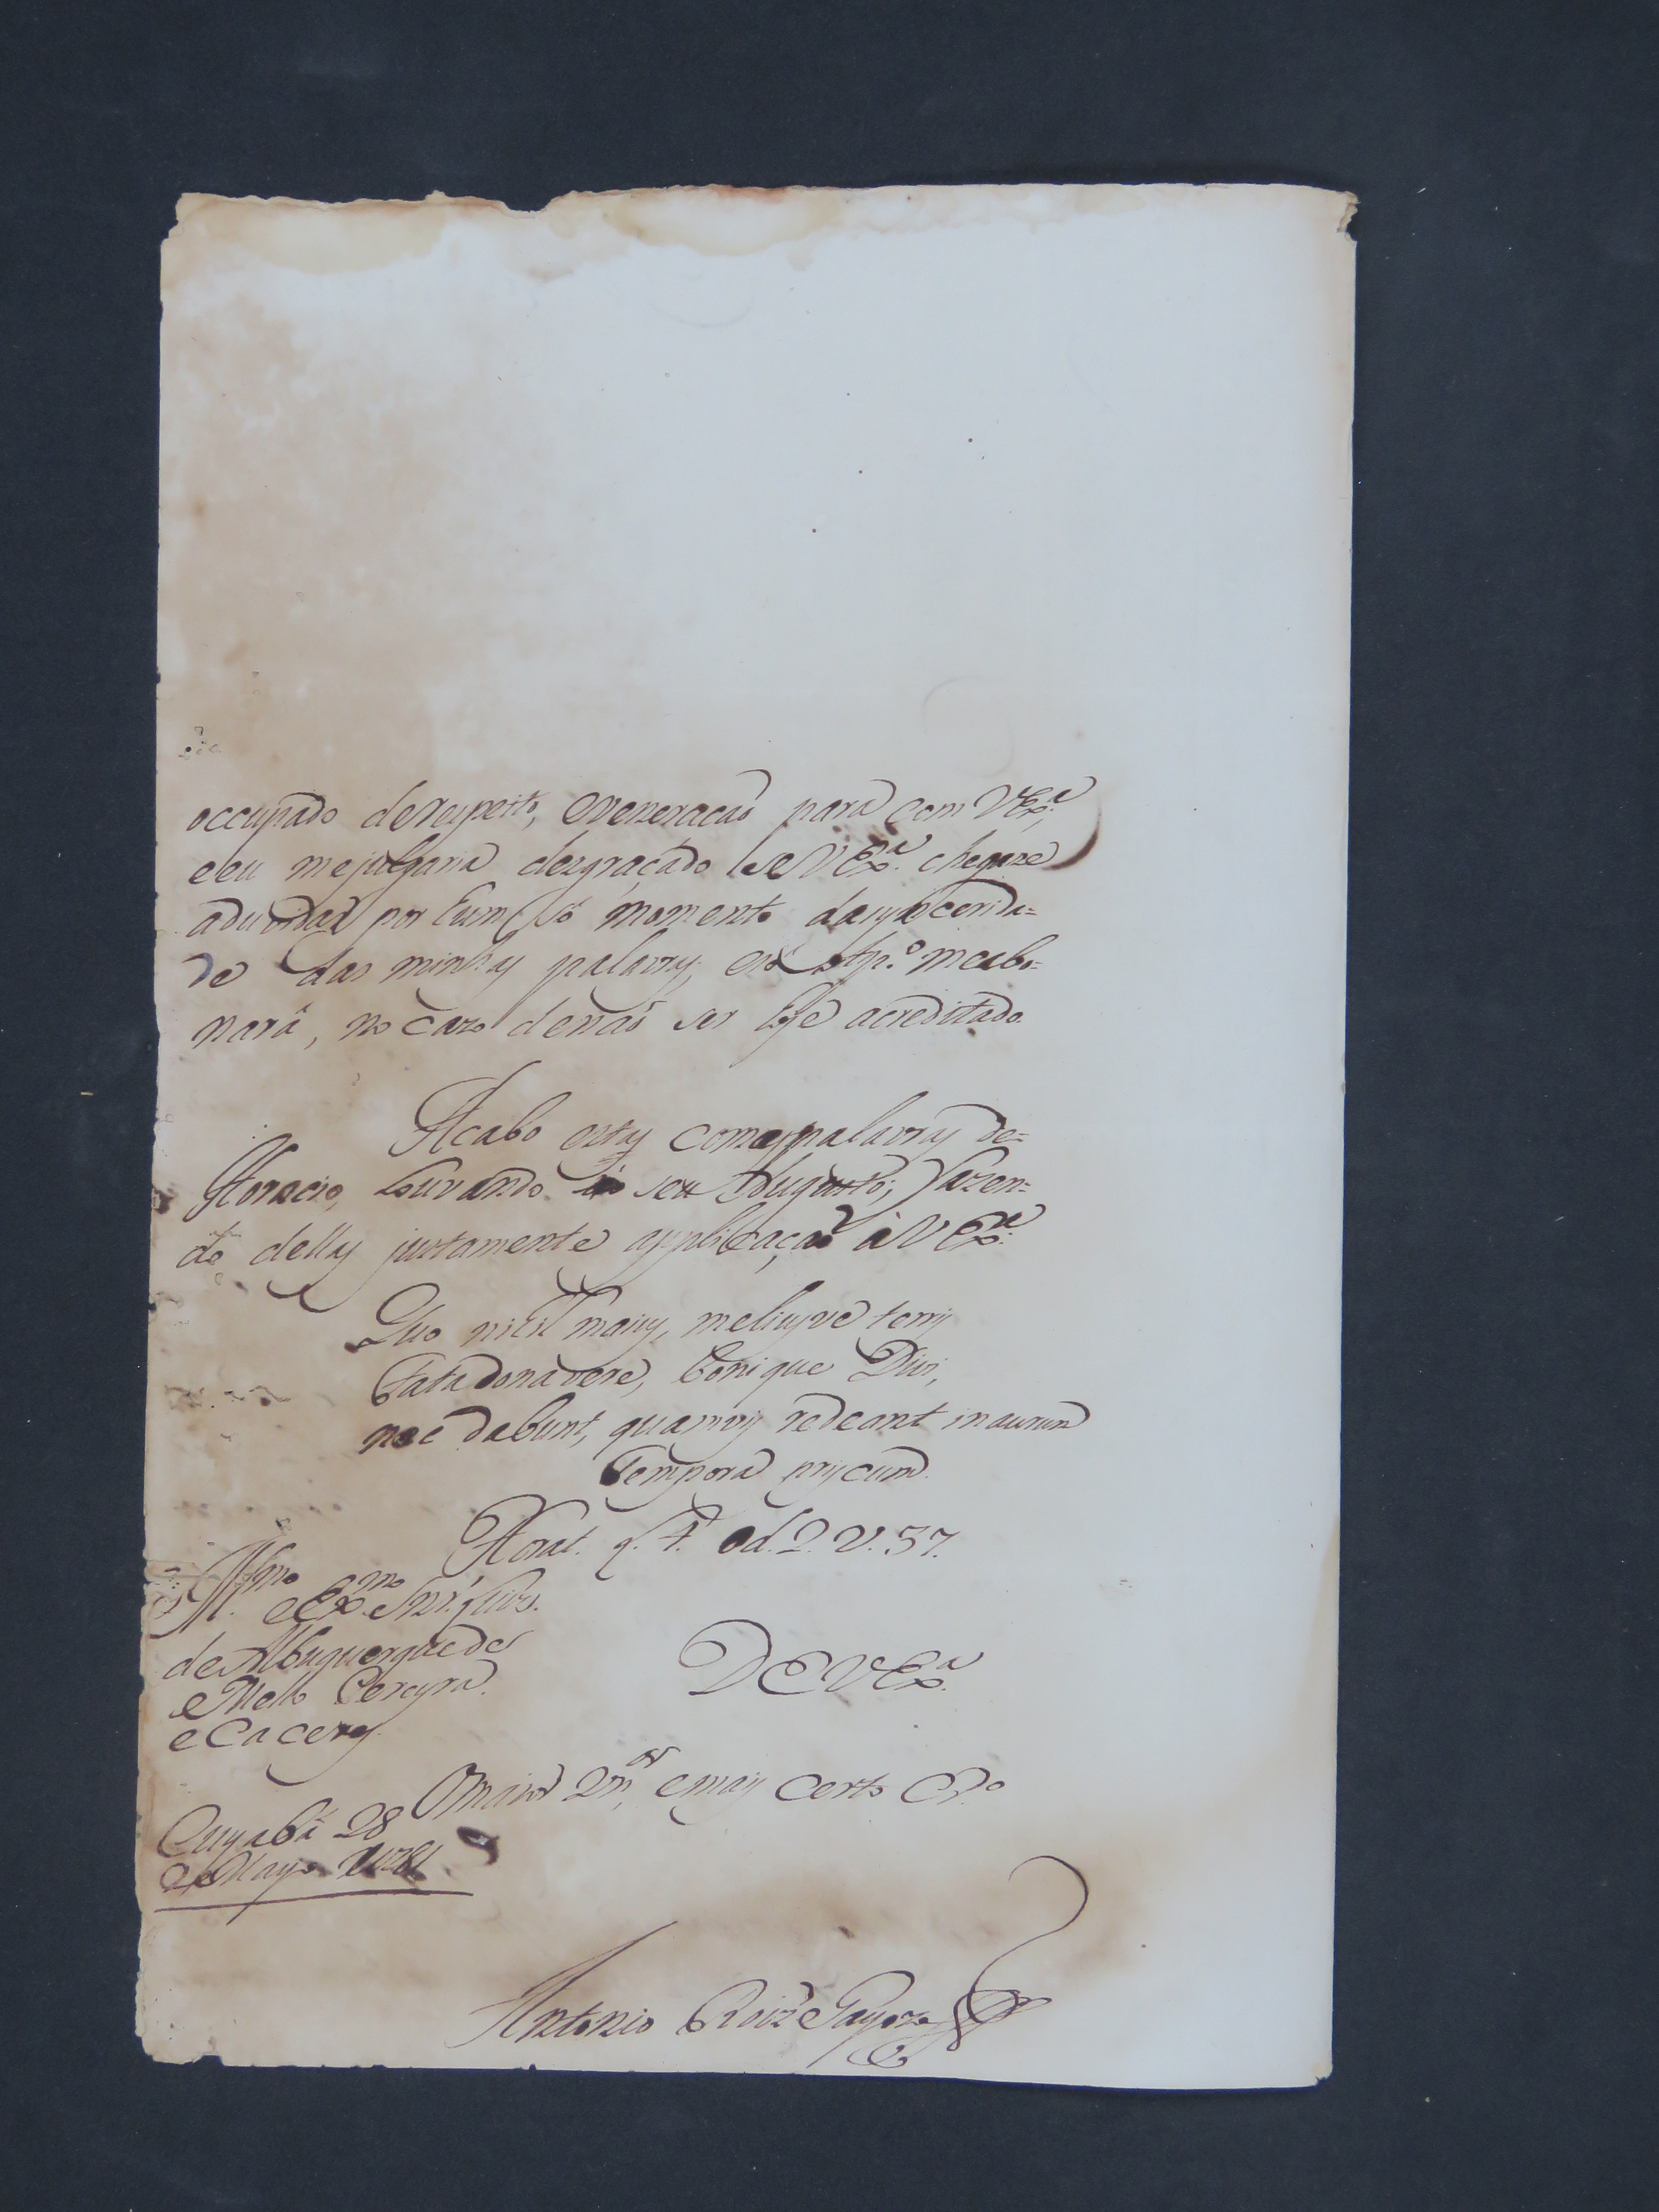 occupado de respeito, e veneracaõ para com V Ex.ª,
e eu me julgaria dezgraçado se V Ex.ª chegaze
a duvidar por hum só momento da syncerida=
de das minhas palavras, e só o tp.º me abo=
nará, no cazo de naõ ser hoje acreditado.
Acabo estas com as palavras de=
Horacio, Louvando ao seu Augusto; fazen=
do dellas justamente applicaçaõ à V Ex.ª
Quo nihil maius, meliusve terris
Fata donavere, bonique Divi,
nec dabunt, quamvis redeant in aurum
Tempora priscum.
Horat. L. 4. Od. 2. V. 37.
Ill.mo e Ex.mo Snr. Luis
de Albuquerque de
e Mello Pereyra
e Caceres
D E V Ex.ª
O maior V.or, e mais certo C.º
Cuyabá 28
de Mayo 1781
Antonio Roiz Gayozo